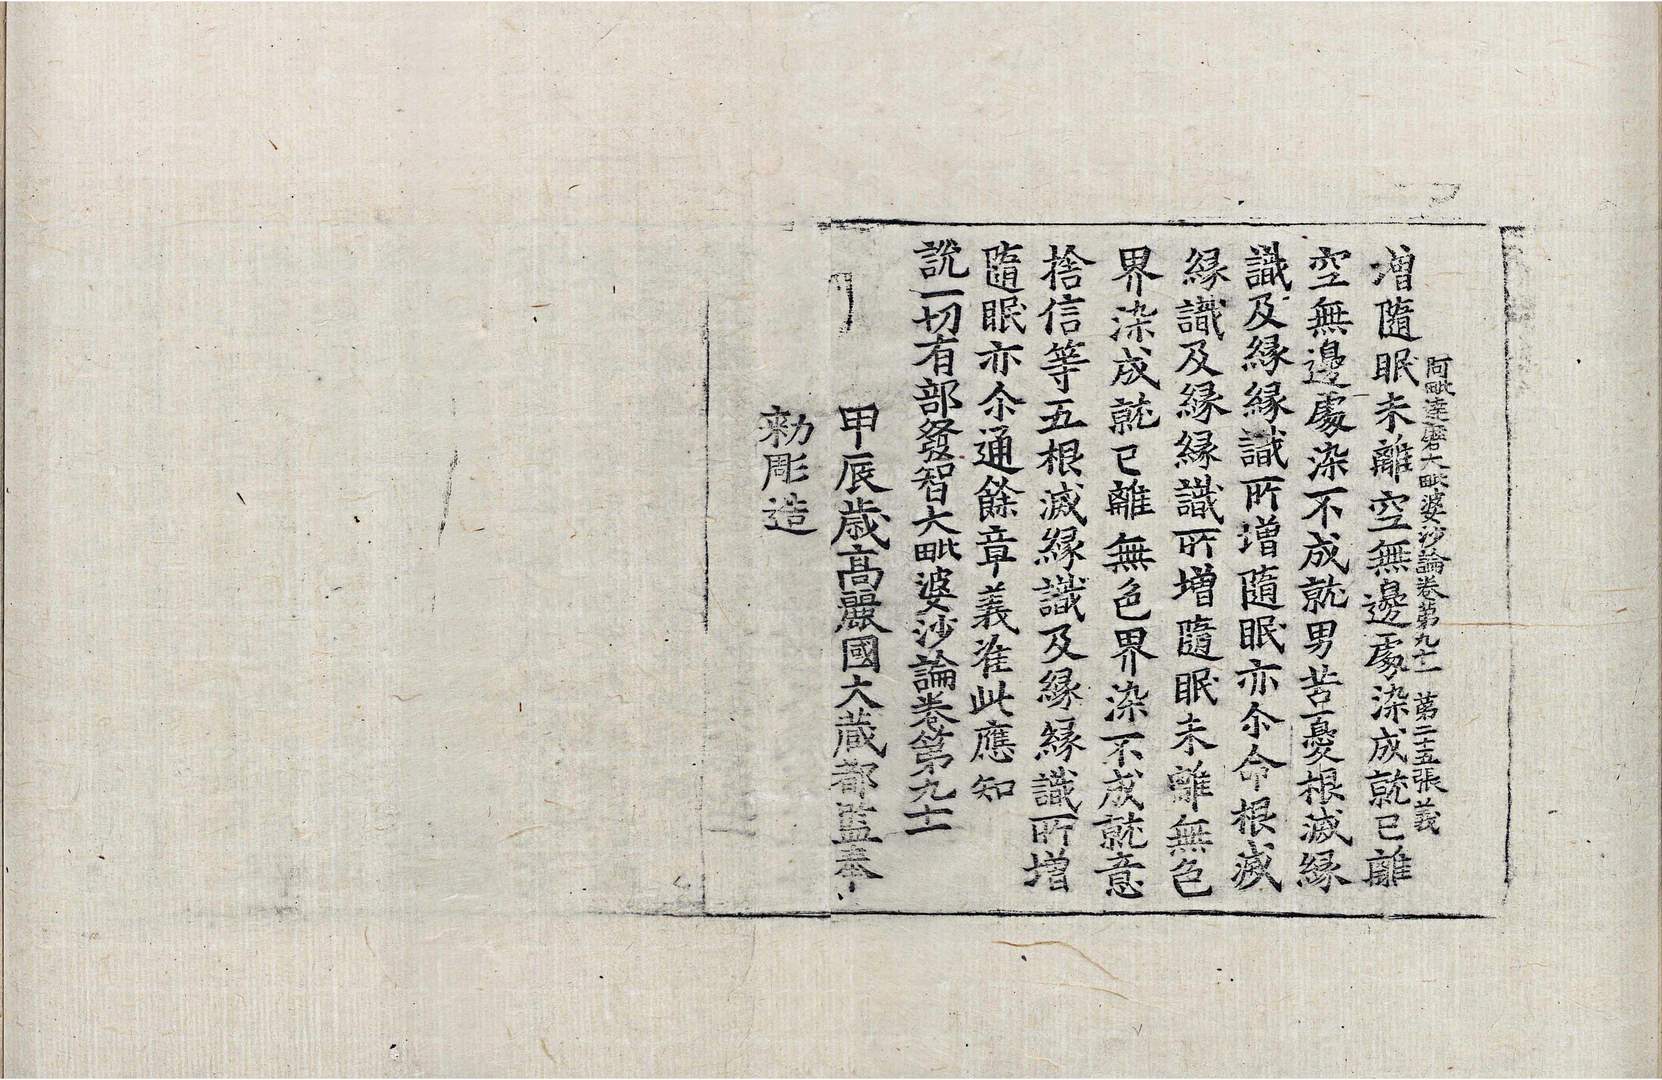 阿毗達磨大毗婆沙論卷第九十一　第二十五張　義
增隨眠未離空無邊處染成就已離
空無邊處染不成就男苦憂根滅緣
識及緣緣識所增隨眠亦尒命根滅
緣識及緣緣識所增隨眠未離無色
界染成就已離無色界染不成就意
捨信等五根滅緣識及緣緣識所增
隨眠亦尒通餘章義准此應知
說一切有部發智大毗婆沙論卷第九十一
甲辰歲高麗國大藏都監奉
勑彫造